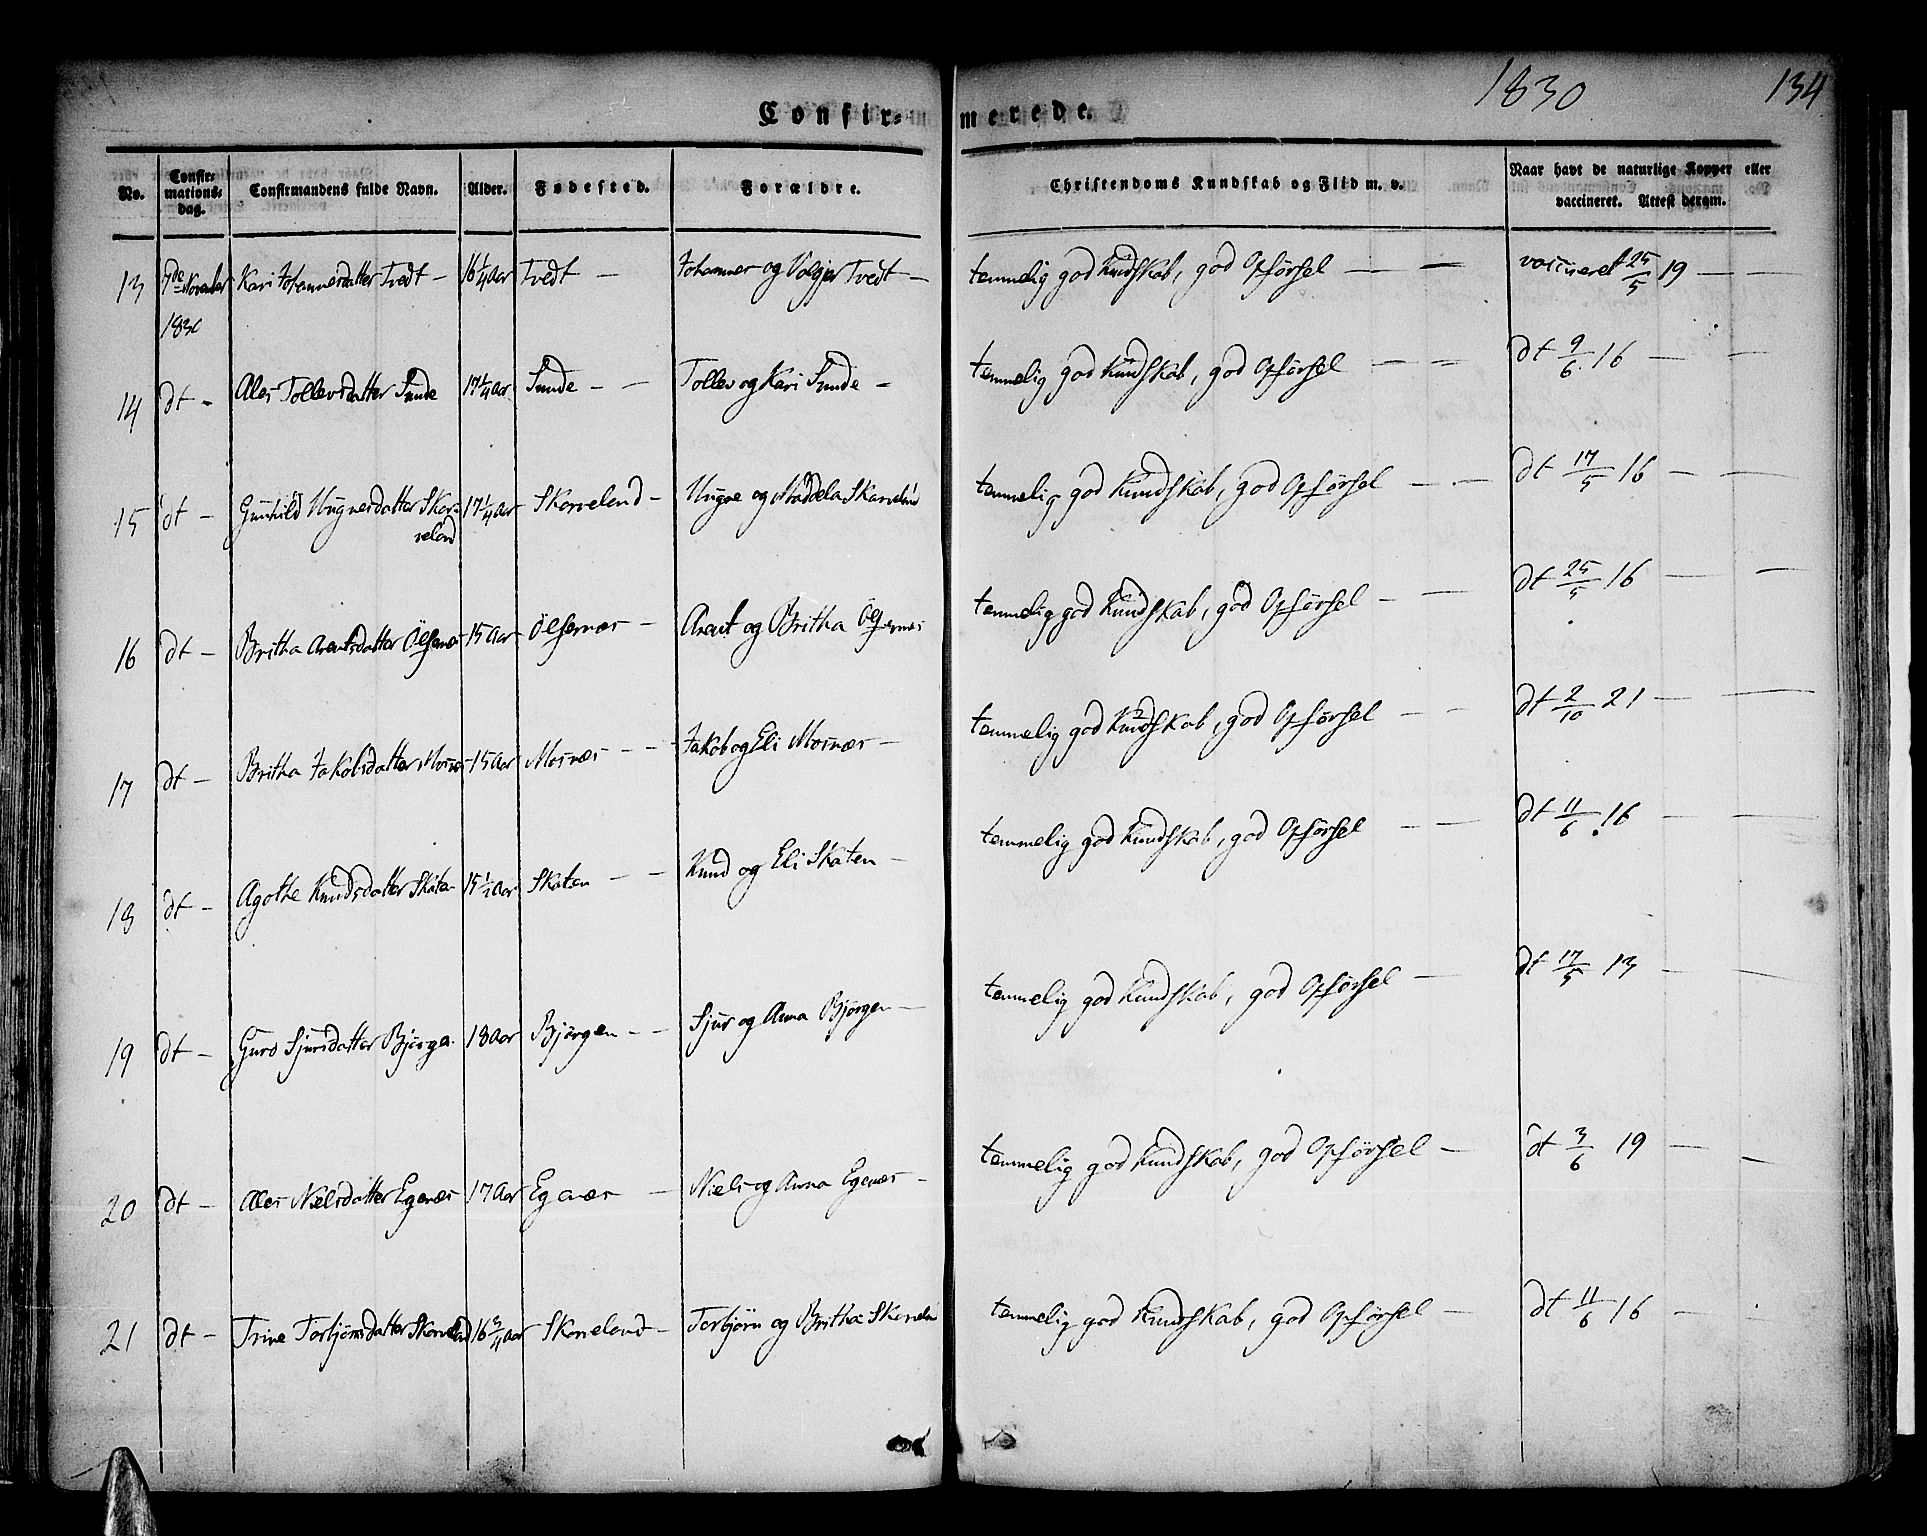 1830
134
Confir-merede.
No. Confirmationsdag. Confirmandens fulde Navn. Alder. Fødested. Forældre. Christendoms Kundskab og Flid m. v. Naar havt de naturlige Kopper eller vaccineret. Attest derom.
13 7de November Kari Johannesdatter Tvedt - 16 1/4 Aar Tvedt - Johannes og Tvedt - temmelig god Kundskab, god Opførsel - - vaccineret 25/5 19 - -
1830
14 dt - Ales Tollevsdatter Sunde 17 1/4 Aar Sunde - - Tollev og Kari Sunde - temmelig god Kundskab, god Opførsel - - dt 9/6 16 - -
15 dt - Gunhild Ungnesdatter Skor- 17 1/4 Aar Skorveland - og Skorveland temmelig god Kundskab, god Opførsel - - dt 17/5 16 - -
veland
16 dt - Britha Arentsdatter Ølfernæs 15 Aar Ølfernæs - Arent og Britha Ølfernæs temmelig god Kundskab, god Opførsel - - dt 25/5 16 - -
17 dt - Britha Jakobsdatter Mosnæs 15 Aar Mosnæs - - - Jakob og Eli Mosnæs - temmelig god Kundskab, god Opførsel - - dt 2/10 21 - -
18 dt - Agothe Knudsdatter Skaten 15 1/2 Aar Skaten - - Knud og Eli Skaten - temmelig god Kundskab, god Opførsel - - dt 11/6 16 - -
19 dt - Guro Sjursdatter Bjørgen 18 Aar Bjørgen - - Sjur og Anna Bjørgen - temmelig god Kundskab, god Opførsel - dt 17/5 13 - -
20 dt - Ales Nielsdatter Egenæs 17 Aar Egenæs - Niels og Anna Egenæs - temmelig god Kundskab, god Opførsel - dt 3/6 19 - -
21 dt - Trine Torbjørnsdatter Skorveland 16 3/4 Aar Skorveland - Torbjørn og Britha Skorveland temmelig god Kundskab, god Opførsel - dt 11/6 16 -